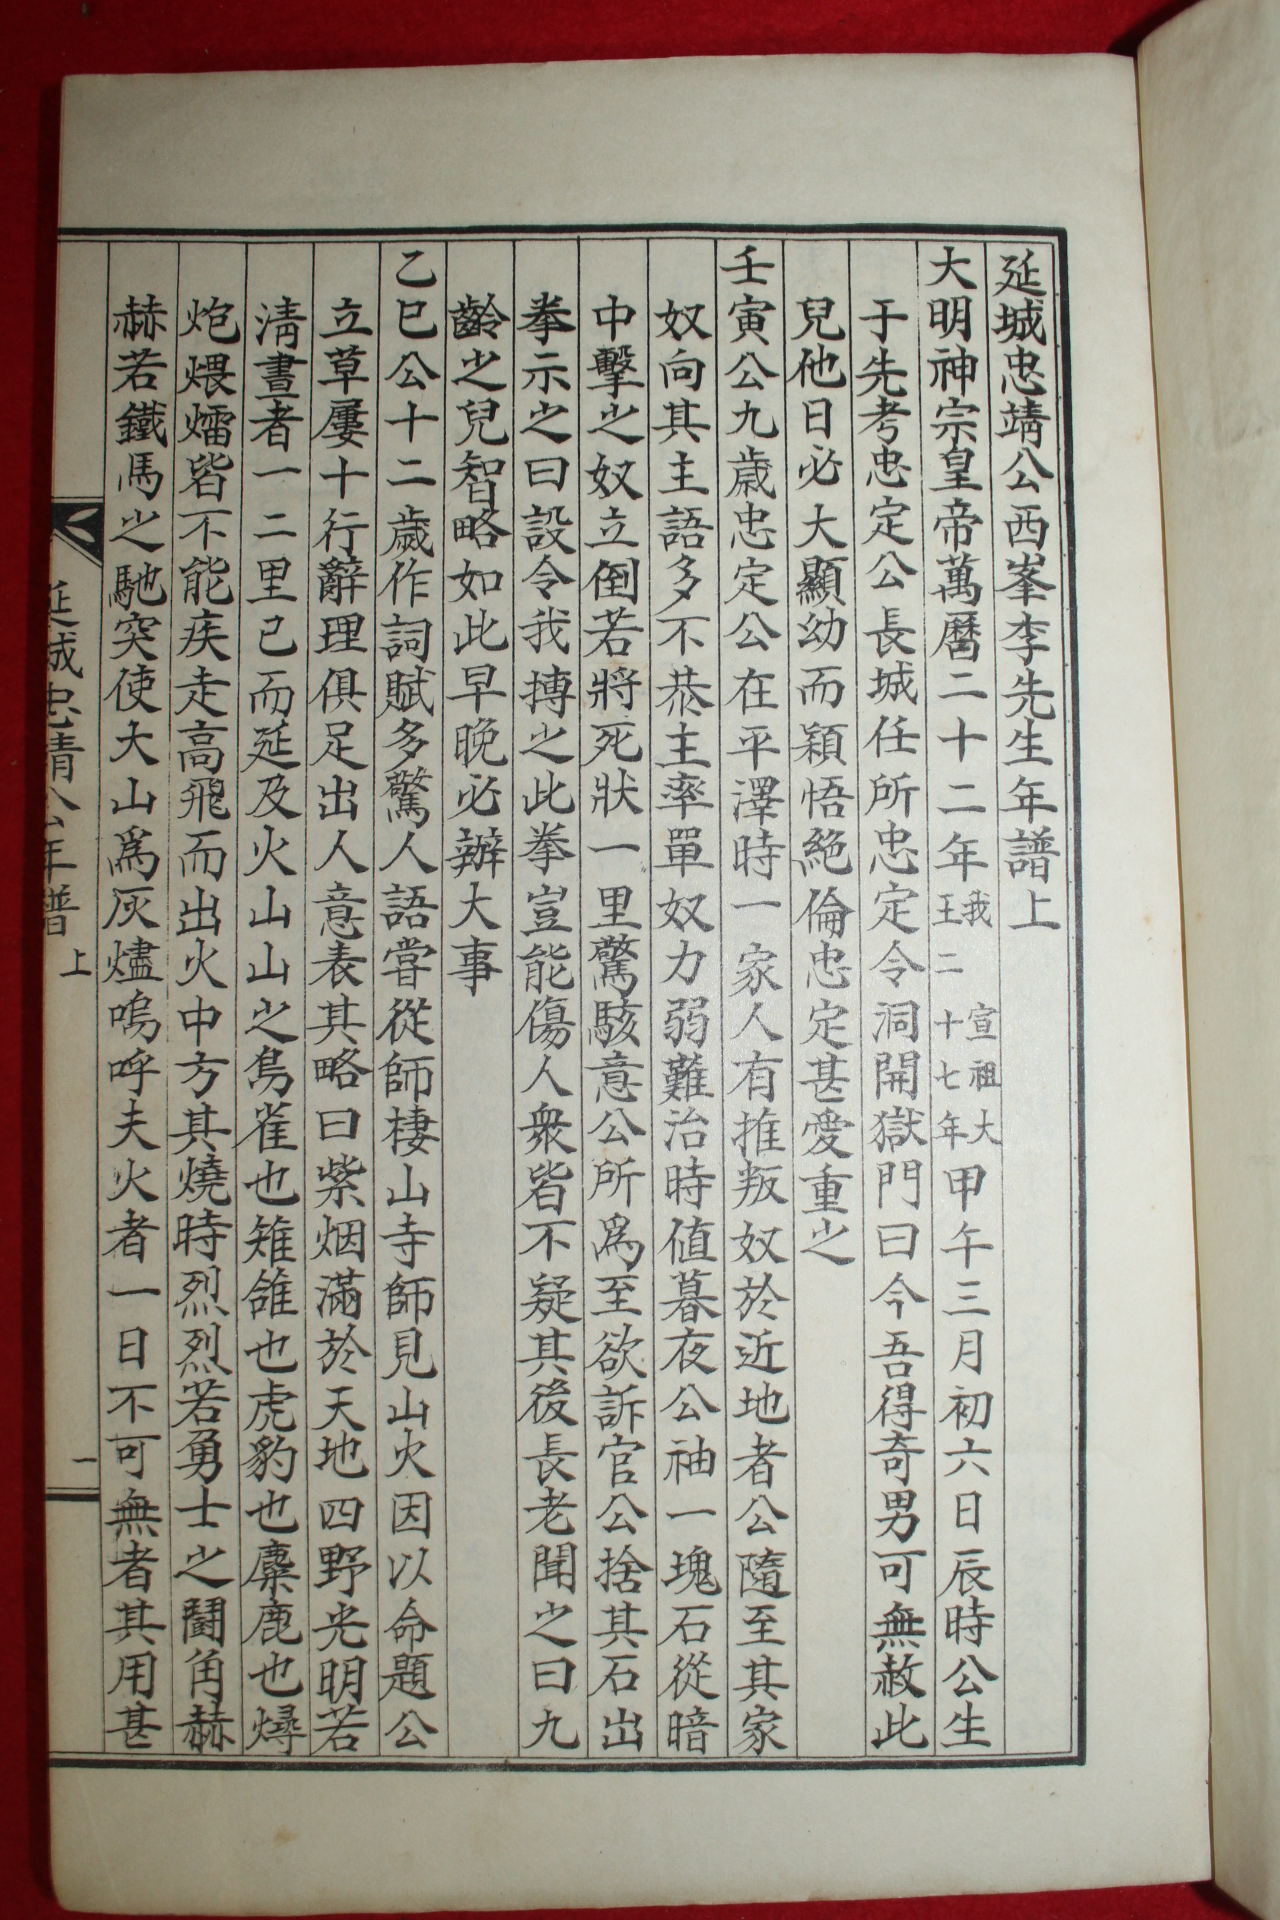 延城忠靖公西峯李先生年譜上
大明神宗皇帝萬曆二十二年我宣祖大王二十七年甲午三月初六日辰時公生
于先考忠定公長城任所忠定令洞開獄門曰今吾得奇男可無赦此
兒他日必大顯幼而穎悟絶倫忠定甚愛重之
壬寅公九歲忠定公在平澤時一家人有推叛奴於近地者公隨至其家
奴向其主語多不恭主率單奴力弱難治時値暮夜公袖一塊石從暗
中擊之奴立倒若將死狀一里驚駭意公所爲至欲訴官公捨其石出
拳示之曰設令我搏之此拳豈能傷人衆皆不疑其後長老聞之曰九
齡之兒智略如此早晚必辦大事
乙巳公十二歲作詞賦多驚人語嘗從師棲山寺師見山火因以命題公
立草屢十行辭理俱足出人意表其略曰紫烟滿於天地四野光明若
淸晝者一二里已而延及火山山之鳥雀也雉雊也虎豹也麋鹿也燖
炮煨燼皆不能疾走高飛而出火中方其燒時烈烈若勇士之鬪角赫
赫若鐵馬之馳突使大山爲灰燼嗚呼夫火者一日不可無者其用甚
延城忠靖公年譜 上 一